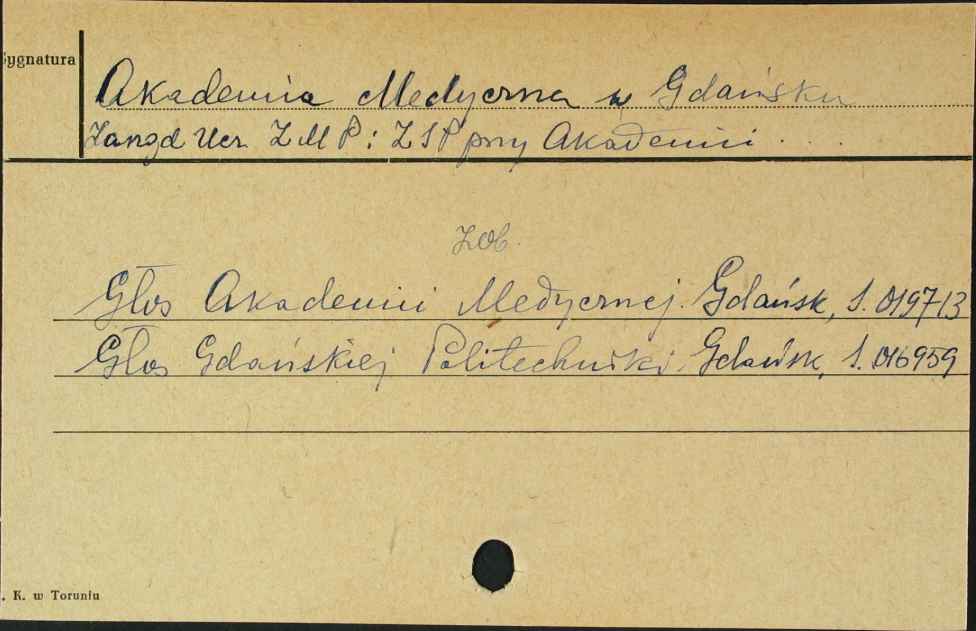 Sygnatura
Akademia Medyczna w Gdańsku
Zarząd Ucz. ZMP i ZSP przy Akademii . . . .
Zob.
Głos Akademii Medycznej. Gdańsk, S. 019713
Głos Gdańskiej Politechniki. Gdańsk, S. 016959
. K. w Toruniu